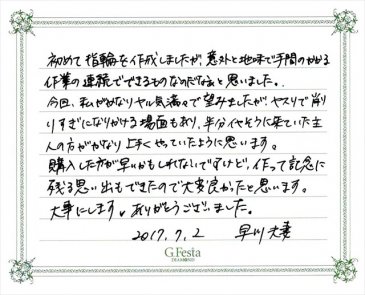 初めて指輪を作成しましたが、意外と地味で手間のかかる
作業の連続でできるものなのだなぁと思いました。
今回、私がかなりヤル気満々で望みましたが、ヤスリで削り
りすぎになりかける場面もあり、半分イヤそうに来ていた主
人の方がかなり上手くやっていたように思います。
購入した方が早いかもしれないですけど、作って記念に
残る思い出もできたので大変良かったと思います。
大事にします。ありがとうございました。
2017.7.2 早川夫妻
G.Festa
DIAMOND